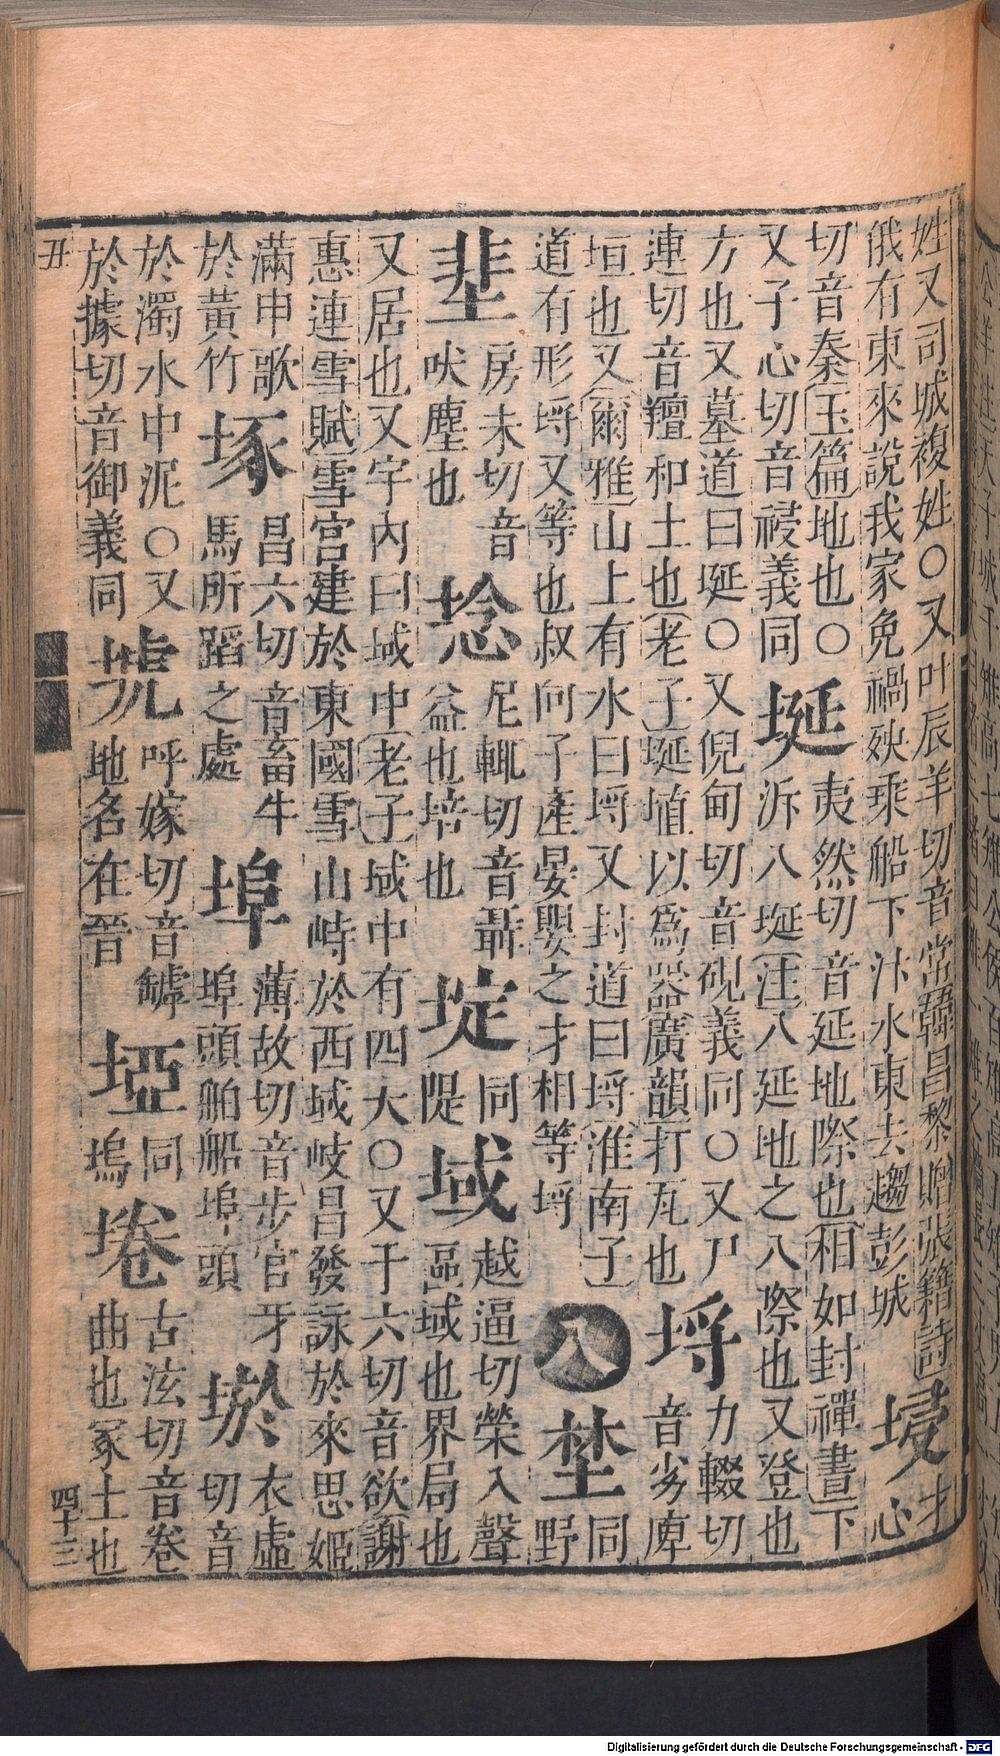 姓又司城複姓○又叶辰羊切音常韓昌黎贈張籍詩
俄有東來說我家免禍殃乘船下汴水東去趨彭城
埐
才心
切音秦玉篇地也○
又子心切音祲義同
埏
夷然切音延地際也相如封禪書下
泝八埏注八延地之八際也又登也
方也又墓道曰埏○又倪甸切音硯義同○又尸
連切音羶和土也老子埏埴以為器廣韻打瓦也
埒
力輟切
音劣庳
垣也又爾雅山上有水曰埒又封道曰埒淮南子
道有形埒又等也叔向子產晏嬰之才相等埒
八
埜
同
野
𡋙
房未切音
吠塵也
埝
尼輒切音聶
益也培也
埞
同
隄
域
越逼切榮入聲
區域也界局也
又居也又字內曰域中老子域中有四大○又于六切音欲謝
惠連雪賦雪宮建於東國雪山峙於西域岐昌發詠於來思姬
滿申歌
於黃竹
埱
昌六切音畜牛
馬所蹈之處
埠
薄故切音步官牙
埠頭舶船埠頭
埝
衣虛
切音
於濁水中泥○又
於據切音御義同
㙈
呼嫁切音罅
地名在晉
埡
同
塢
埢
古泫切音卷
曲也冢土也
丑
四十三
Digitalisierung gefördert durch die Deutsche Forschungsgemeinschaft - DFG